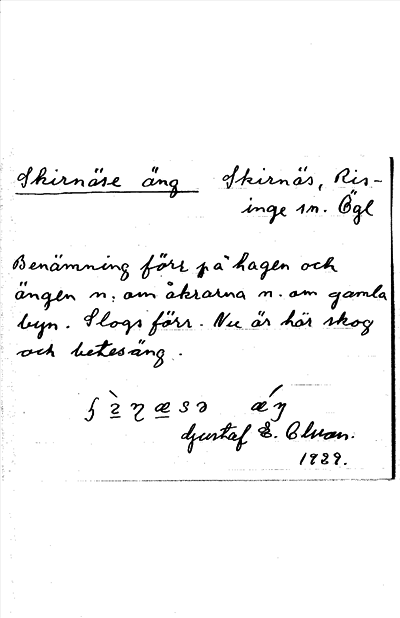 Skirnäse äng Skirnäs, Ris-
inge sn. Ögl
Benämning förr på hagen och
ängen n. om åkrarna n. om gamla
byn. Slogs förr. Nu är här skog
och betesäng.
Gustaf E.
1929.